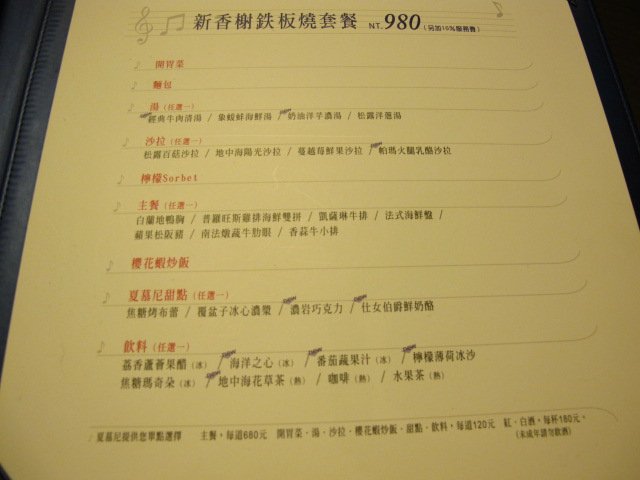 新香榭鉄板燒套餐 NT.980 (另加10%服務費)
開胃菜
麵包
湯 (任選一)
經典牛肉清湯 / 象蚬鮮海鮮湯 / 奶油洋芋濃湯 / 松露洋蔥湯
沙拉 (任選一)
松露百菇沙拉 / 地中海陽光沙拉 / 蔓越莓鮮果沙拉 / 帕瑪火腿乳酪沙拉
檸檬Sorbet
主餐 (任選一)
白蘭地鴨胸 / 普羅旺斯雞排海鮮雙拼 / 凱薩琳牛排 / 法式海鮮盤 /
蘋果松阪豬 / 南法燉蔬牛肋眼 / 香蒜牛小排
櫻花蝦炒飯
夏慕尼甜點 (任選一)
焦糖烤布蕾 / 覆盆子冰心濃漿 / 濃岩巧克力 / 仕女伯爵鮮奶酪
飲料 (任選一)
荔香蘆薈果醋 (冰) / 海洋之心 (冰) / 番茄蔬果汁 (冰) / 檸檬薄荷冰沙
焦糖瑪奇朵 (熱) / 地中海花草茶 (熱) / 咖啡 (熱) / 水果茶 (熱)
夏慕尼提供您單點選擇 主餐，每道680元 開胃菜．湯．沙拉．櫻花蝦炒飯．甜點．飲料，每道120元 紅．白酒，每杯180元。
(未成年請勿飲酒)